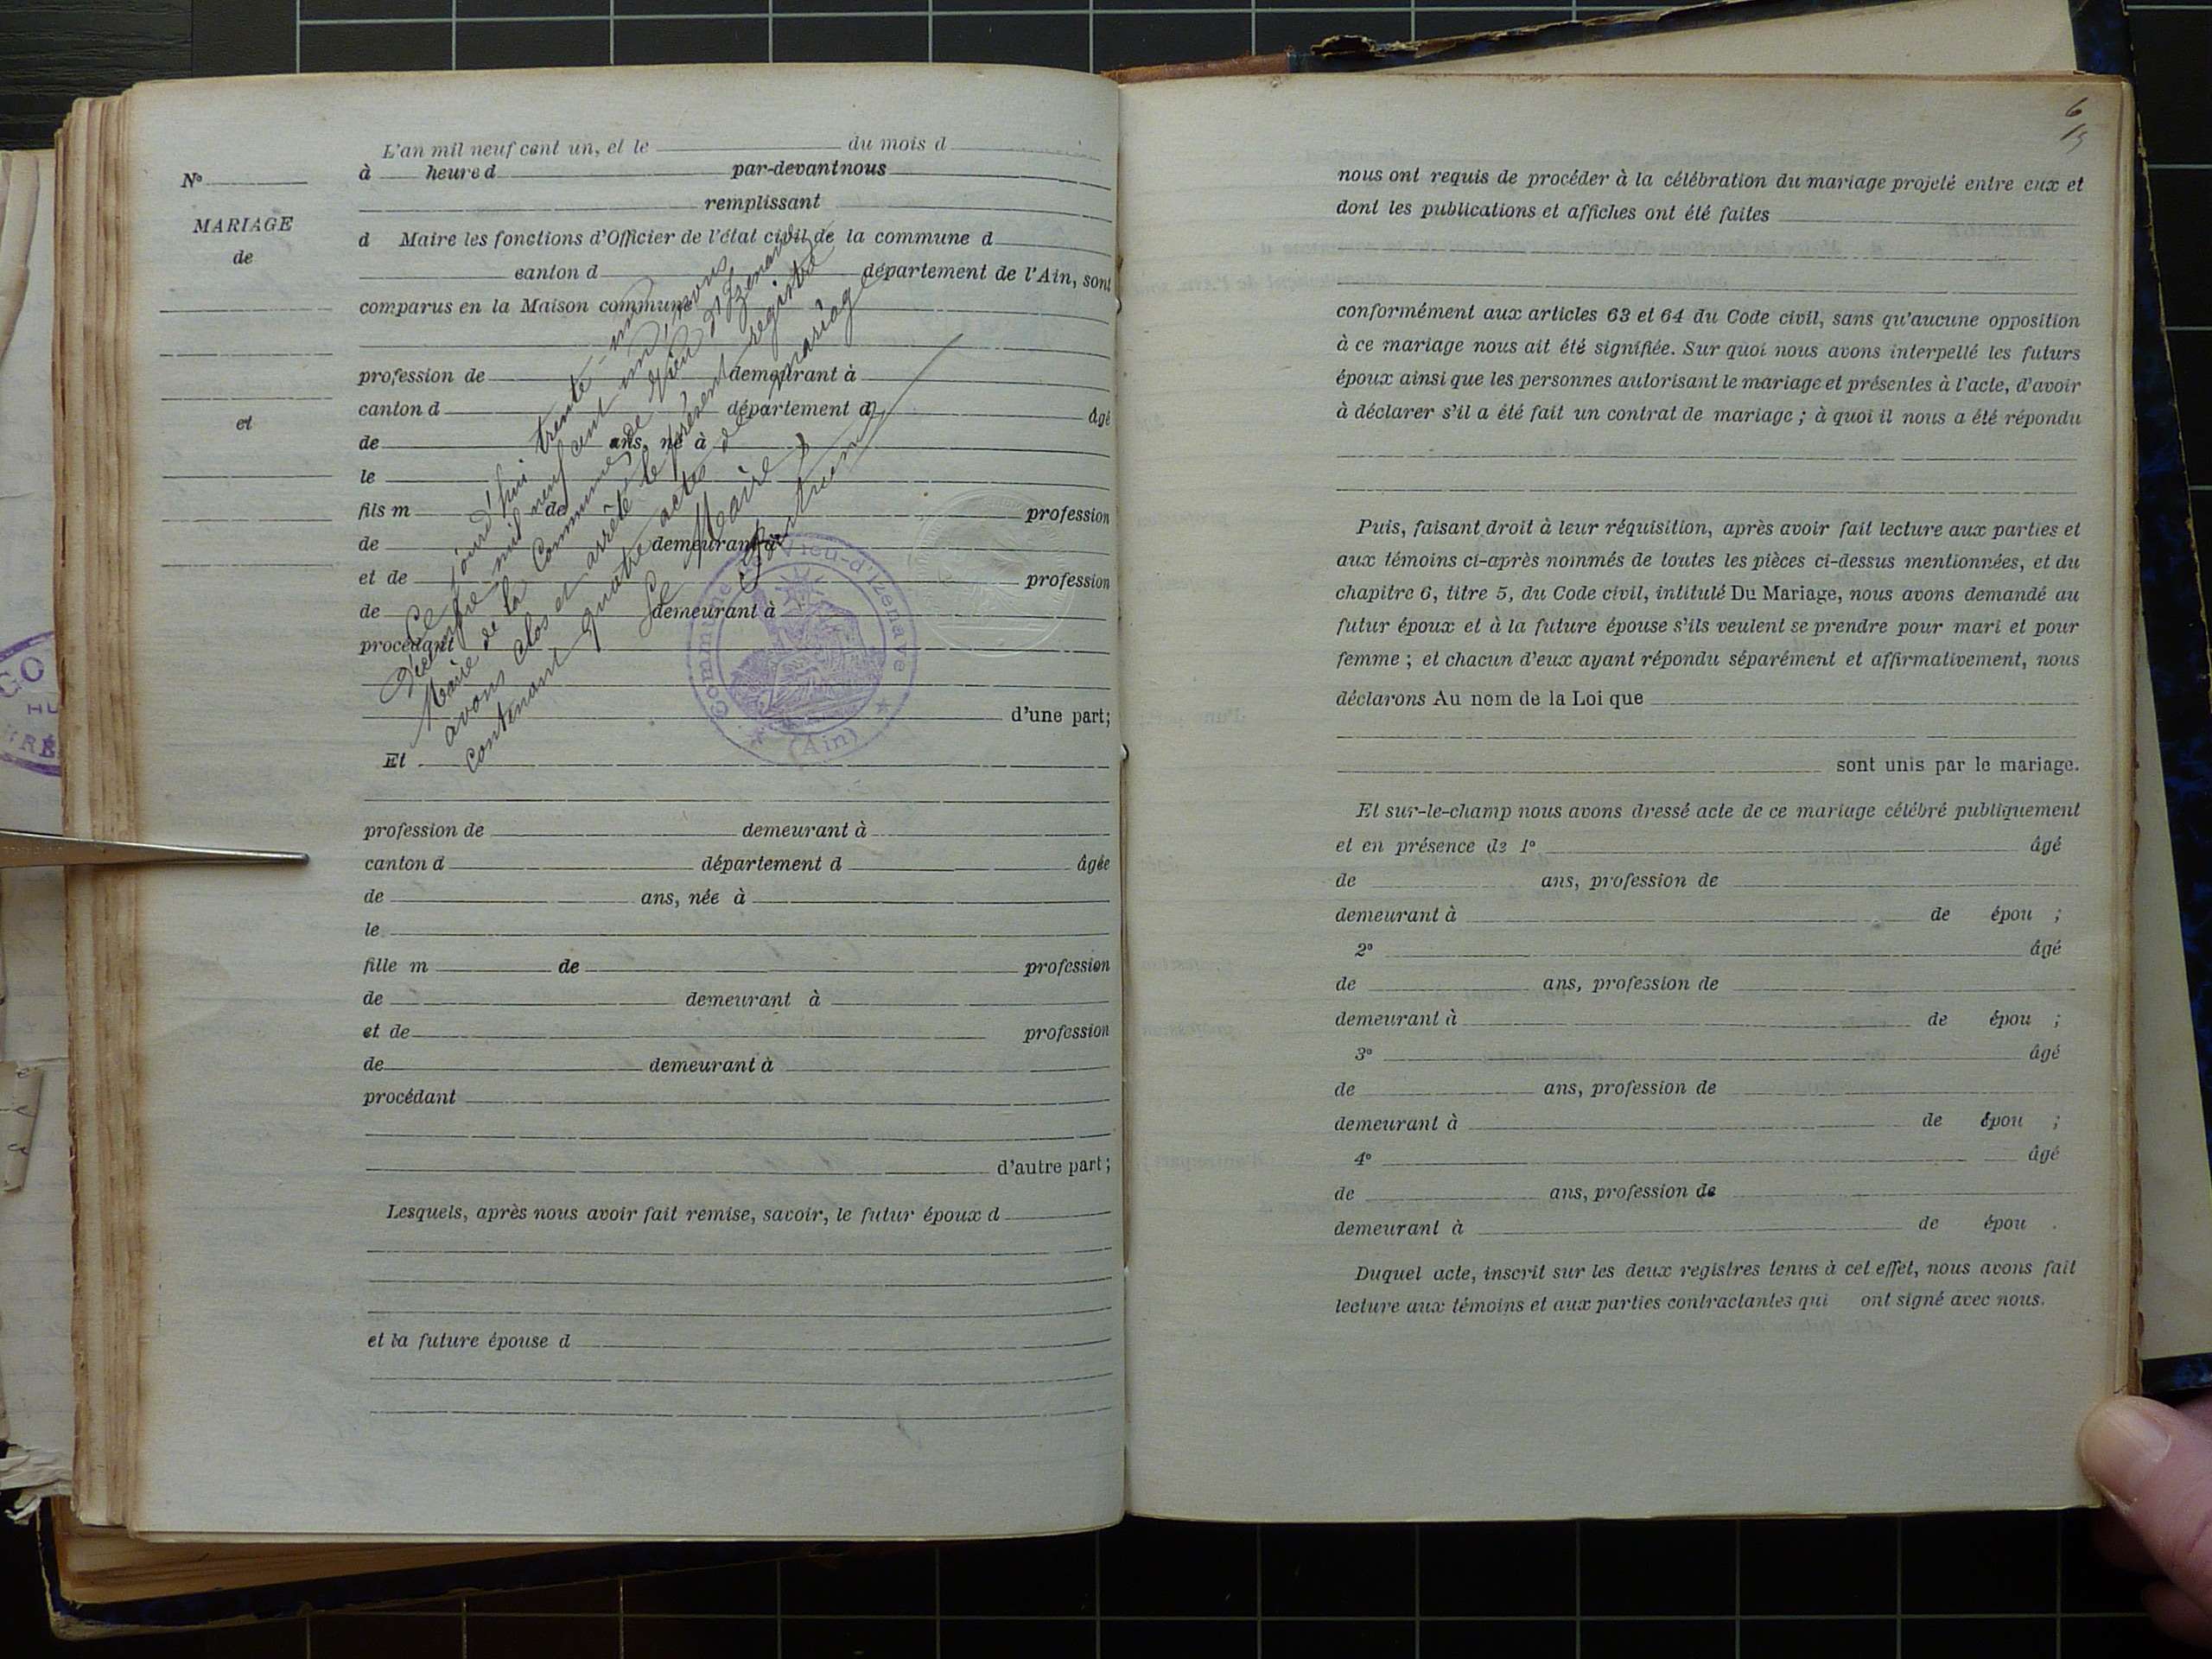 L'an mil neuf cent un, et le du mois d
à heure d par-devant nous
remplissant
d Maire les fonctions d'Officier de l'état civil de la commune d
canton d département de l'Ain, sont
comparus en la Maison commune
profession de demeurant à
canton d département d âgé
de ans, né à
le
fils m de profession
de demeurant à
et de profession
de demeurant à
procédant
d'une part;
Et
profession de demeurant à
canton d département d âgée
de ans, née à
le
fille m de profession
de demeurant à
et de profession
de demeurant à
procédant
d'autre part;
Lesquels, après nous avoir fait remise, savoir, le futur époux d
et la future épouse d
N°
MARIAGE
de
et
Ce jourd'hui trente-un
Décembre mil neuf cent un, nous
Maire de la Commune de Vieu d'Izenave
avons clos et arrêté le présent registre
contenant quatre actes de mariage
Le Maire,
Commune de Vieu-d'Izenave
(Ain)
6
15
nous ont requis de procéder à la célébration du mariage projeté entre eux et
dont les publications et affiches ont été faites
conformément aux articles 63 et 64 du Code civil, sans qu'aucune opposition
à ce mariage nous ait été signifiée. Sur quoi nous avons interpellé les futurs
époux ainsi que les personnes autorisant le mariage et présentes à l'acte, d'avoir
à déclarer s'il a été fait un contrat de mariage ; à quoi il nous a été répondu
Puis, faisant droit à leur réquisition, après avoir fait lecture aux parties et
aux témoins ci-après nommés de toutes les pièces ci-dessus mentionnées, et du
chapitre 6, titre 5, du Code civil, intitulé Du Mariage, nous avons demandé au
futur époux et à la future épouse s'ils veulent se prendre pour mari et pour
femme ; et chacun d'eux ayant répondu séparément et affirmativement, nous
déclarons Au nom de la Loi que
sont unis par le mariage.
Et sur-le-champ nous avons dressé acte de ce mariage célébré publiquement
et en présence de 1° âgé
de ans, profession de
demeurant à de épou ;
2° âgé
de ans, profession de
demeurant à de épou ;
3° âgé
de ans, profession de
demeurant à de épou ;
4° âgé
de ans, profession de
demeurant à de épou .
Duquel acte, inscrit sur les deux registres tenus à cet effet, nous avons fait
lecture aux témoins et aux parties contractantes qui ont signé avec nous.